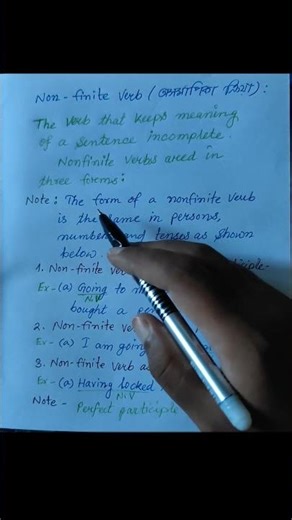 Non-finite verb ( ) :
The verb that keeps meaning
of a sentence incomplete.
Nonfinite verbs ared in
three forms:
Note: The form of a nonfinite verb
is the same in persons,
number and tenses as shown
below.
1. Non-finite
Ex- (a) Going to
N.V
bought a
2. Non-finite
Ex- (a) I am going
3. Non-finite verb as
Ex- (a) Having locked
N.V
Note - Perfect participle